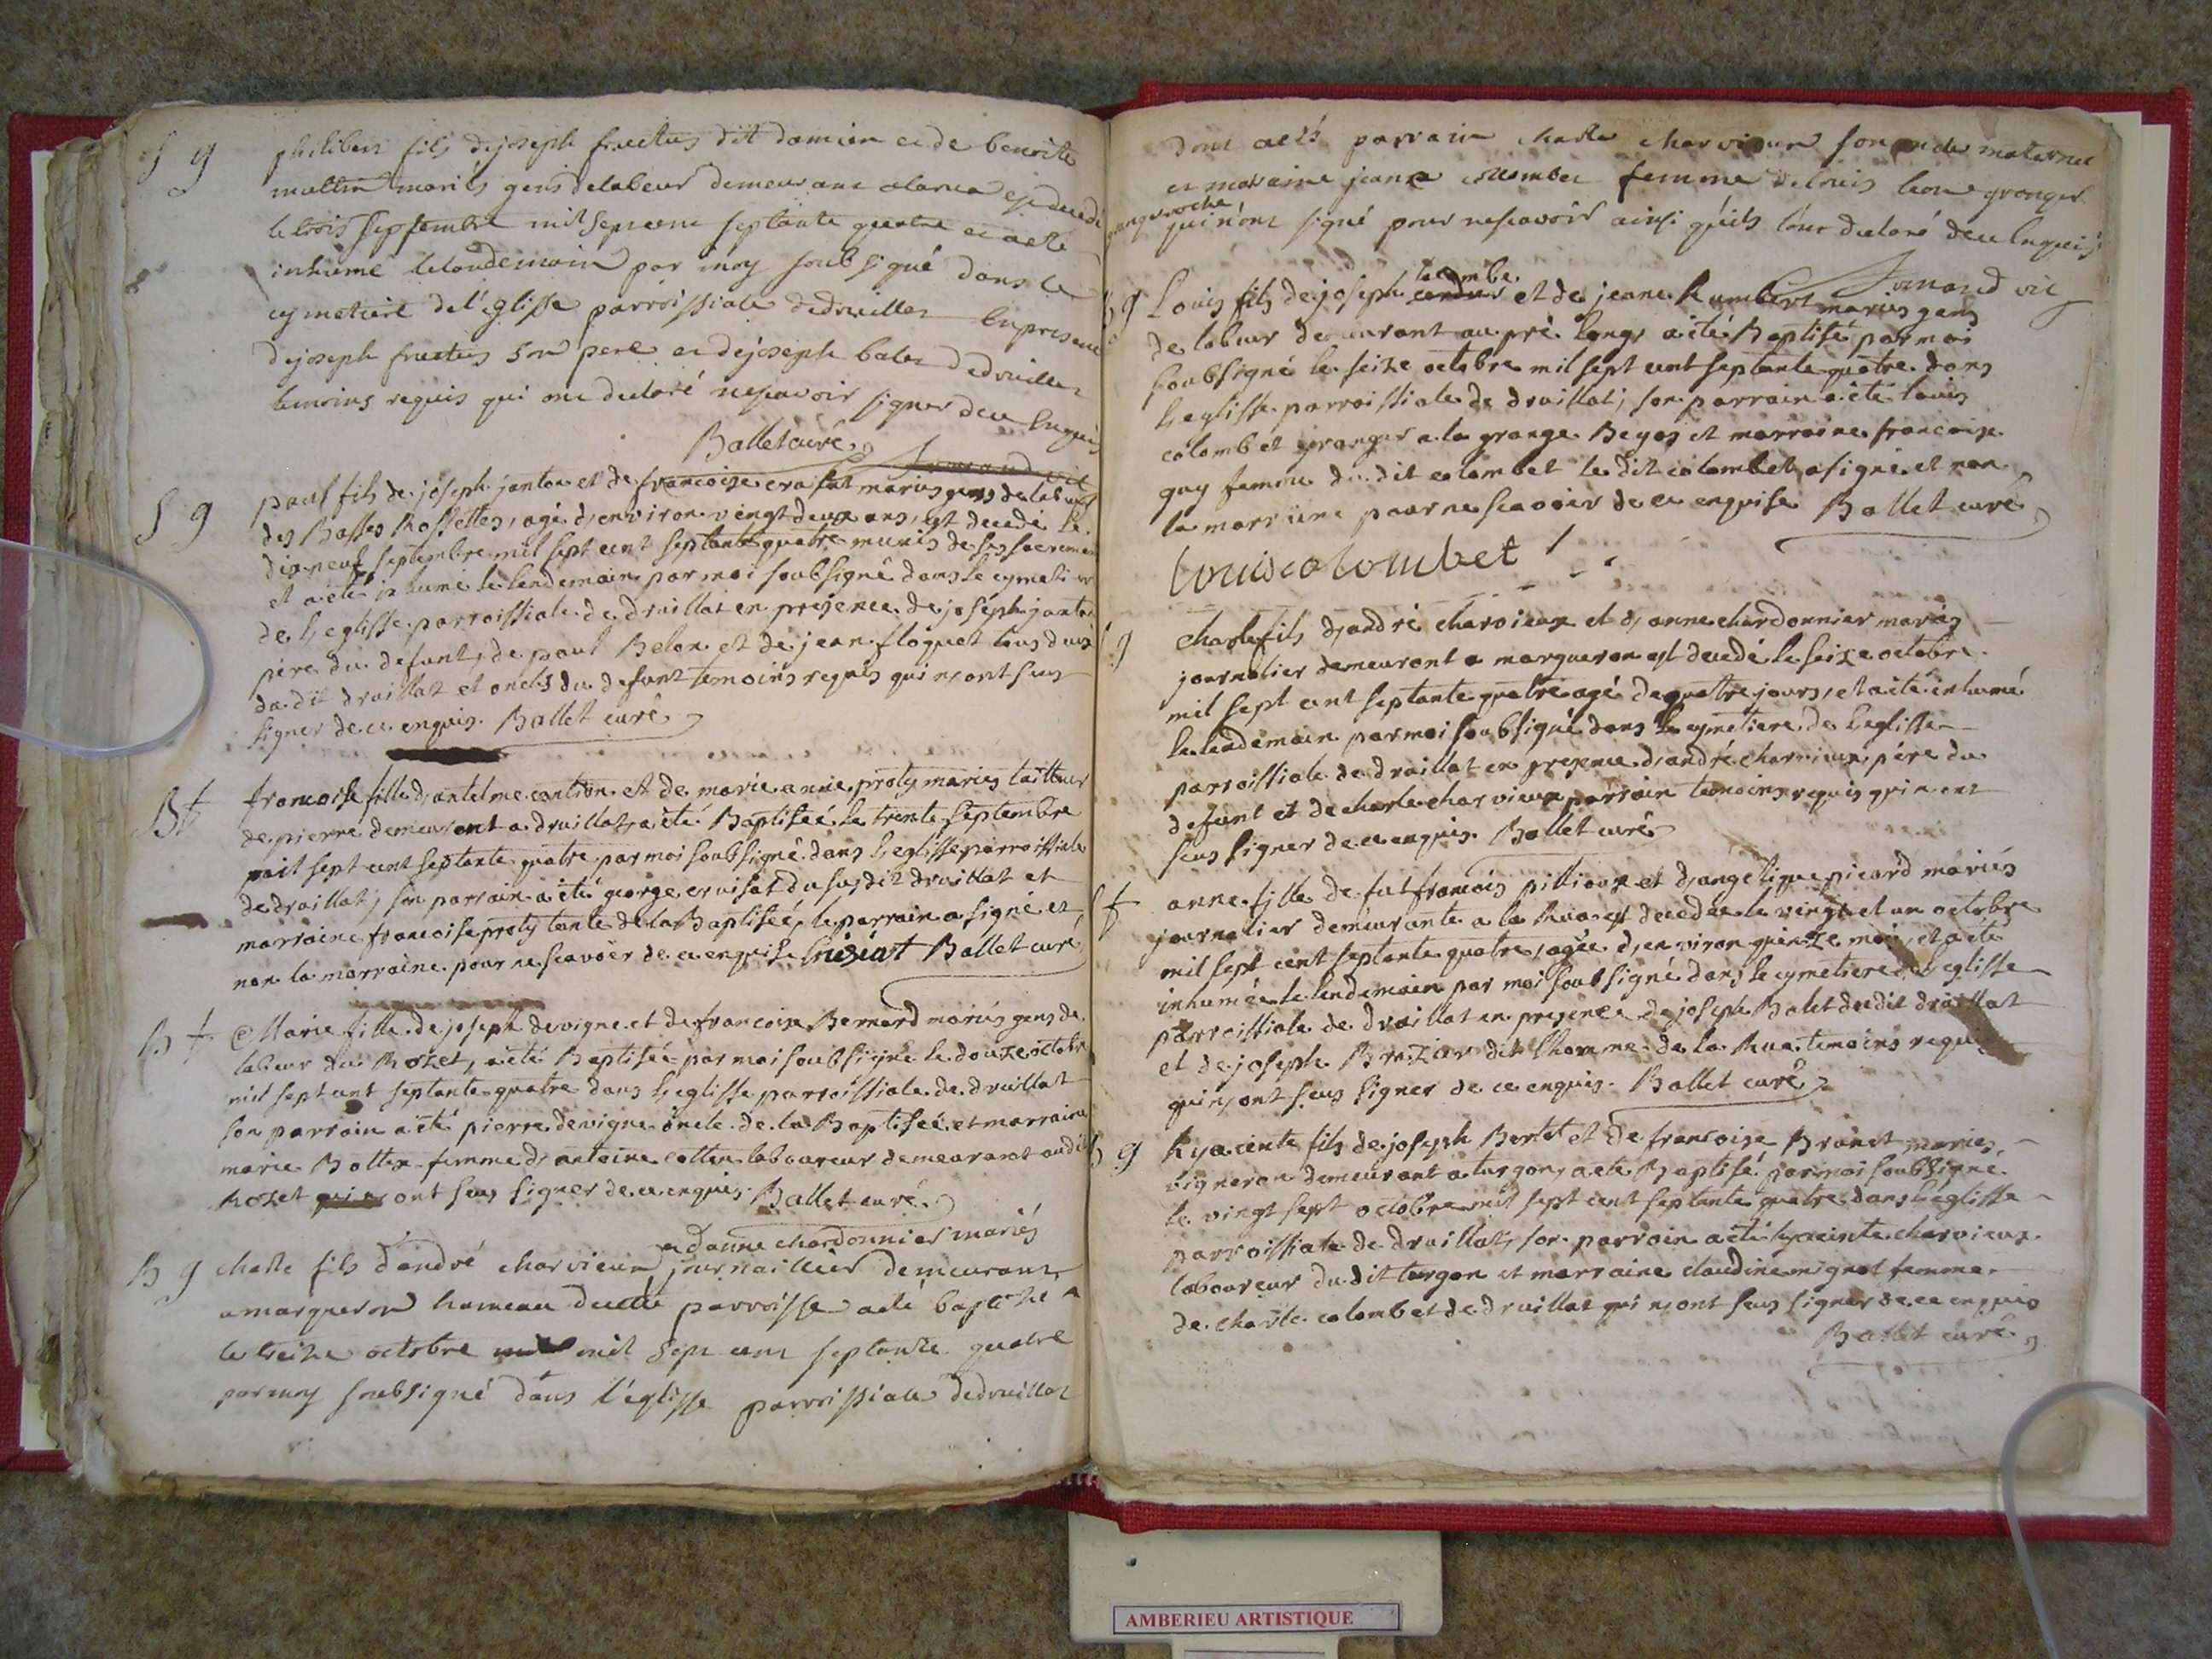 S g
philibert fils de joseph fructus dit damien et de benoite
mariés gens de labeur demeurant est decedé
le trois septembre mil sept cent septante quatre et a eté
inhumé le landemain par moy soubsigné dans le
cymetiere de l'eglisse parroissiale de druillat en presence
de joseph fructus son pere et de joseph balet de druillat
temoins requis qui ont declaré ne scavoir signer de ce enquis
Ballet curé
S g
paul fils de joseph janton et de francoise cruisat mariés gens de labeur
des Basses Rossettes, agé d,environ vingt deux ans, est decedé le
dix neuf septembre mil sept cent septante quatre munis de ses sacremens
et a eté inhumé le lendemain par moi soubsigné dans le cymetiere
de l,eglisse parroissiale de druillat en presence de joseph janton
pére du defunt, de paul Belon et de jean floquet tous deux
du dit druillat et oncles du defunt temoins requis qui n,ont seus
signer de ce enquis. Ballet curé
B f
francoise fille d,antelme contion et de marie anne proty mariés tailleur
de pierre demeurant a druillat, a eté Baptisée le trente septembre
mil sept cent septante quatre par moi soubsigné dans l,eglisse parroissiale
de druillat, son parrain a été george cruisat du susdit druillat et
marraine francoise proty tante de la Baptisée, le parrain a signé et
non la marraine pour ne scavoir de ce enquise Ballet curé
B f
Marie fille de joseph devigne et de francoise Bernard mariés gens de
labeur du Rozet, a eté Baptisée par moi soubsigné le douze octobre
mil sept cent septante quatre dans l,eglisse parroissiale de druillat
son parrain a été pierre devigne oncle de la Baptisée et marraine
marie Botten femme d,antoine cottin laboureur demeurant audit
Rozet qui n ont seus signer de ce enquis. Ballet curé
et danne chardonnier mariés
B g
charle fils d'andré charvieux journaillier demeurant
a margueron hameau de cette parroisse a eté baptisé
le treize octobre mil sept cent septante quatre
par moy soubsigné dans l'eglisse parroissiale de druillat
dont a eté parrain charle charvieux son oncle maternel
et maraine jeanne collombet femme de louis granger
qui n'ont signé pour ne scavoir ainsi qu'ils l'ont declaré de ce enquis
lacombe
B g
Louis fils de joseph et de jeanne humbert mariés gens
de labeur demeurant au pré long, a été Baptisé par moi
soubsigné le seize octobre mil sept cent septante quatre dans
l,eglisse parroissiale de druillat, son parrain a été louis
colombet granger a la grange Beyos et marraine francoise
guy femme du dit colombet le dit colombet a signé et non
la marraine pour ne scavoir de ce enquise Ballet curé
louis colombet
S g
charle fils d,andré charvieux et d,anne chardonnier mariés
journalier demeurant a margueron est decedé le seize octobre
mil sept cent septante quatre agé de quatre jours, et a été inhumé
le lendemain par moi soubsigné dans le cymetiere de l,eglisse
parroissiale de druillat en presence d,andré charvieux pére du
defunt et de charle charvieux parrain temoins requis qui n,ont
seus signer de ce enquis. Ballet curé
S f
anne fille de fut francois pillioux et d,angelique picard mariés
journalier demeurante a la Rua est decedée le vingt et un octobre
mil sept cent septante quatre, agée d,environ quinze mois, et a eté
inhumée le lendemain par moi soubsigné dans le cymetiere de l,eglisse
parroissiale de druillat en presence de joseph Balet dudit druillat
et de joseph Brazier dit lhomme de la Rua temoins requis
qui n,ont seus signer de ce enquis. Ballet curé
B g
hyacinte fils de joseph Bertet et de francoise Brunet mariés
vigneron demeurant a turgon, a eté Baptisé par moi soubsigné
le vingt sept octobre mil sept cent septante quatre dans l,eglisse
parroissiale de druillat, son parrain a été hyacinte charvieux
laboureur du dit turgon et marraine claudine mignot femme
de charle colombet de druillat qui n,ont seus signer de ce enquis
Ballet curé
AMBERIEU ARTISTIQUE